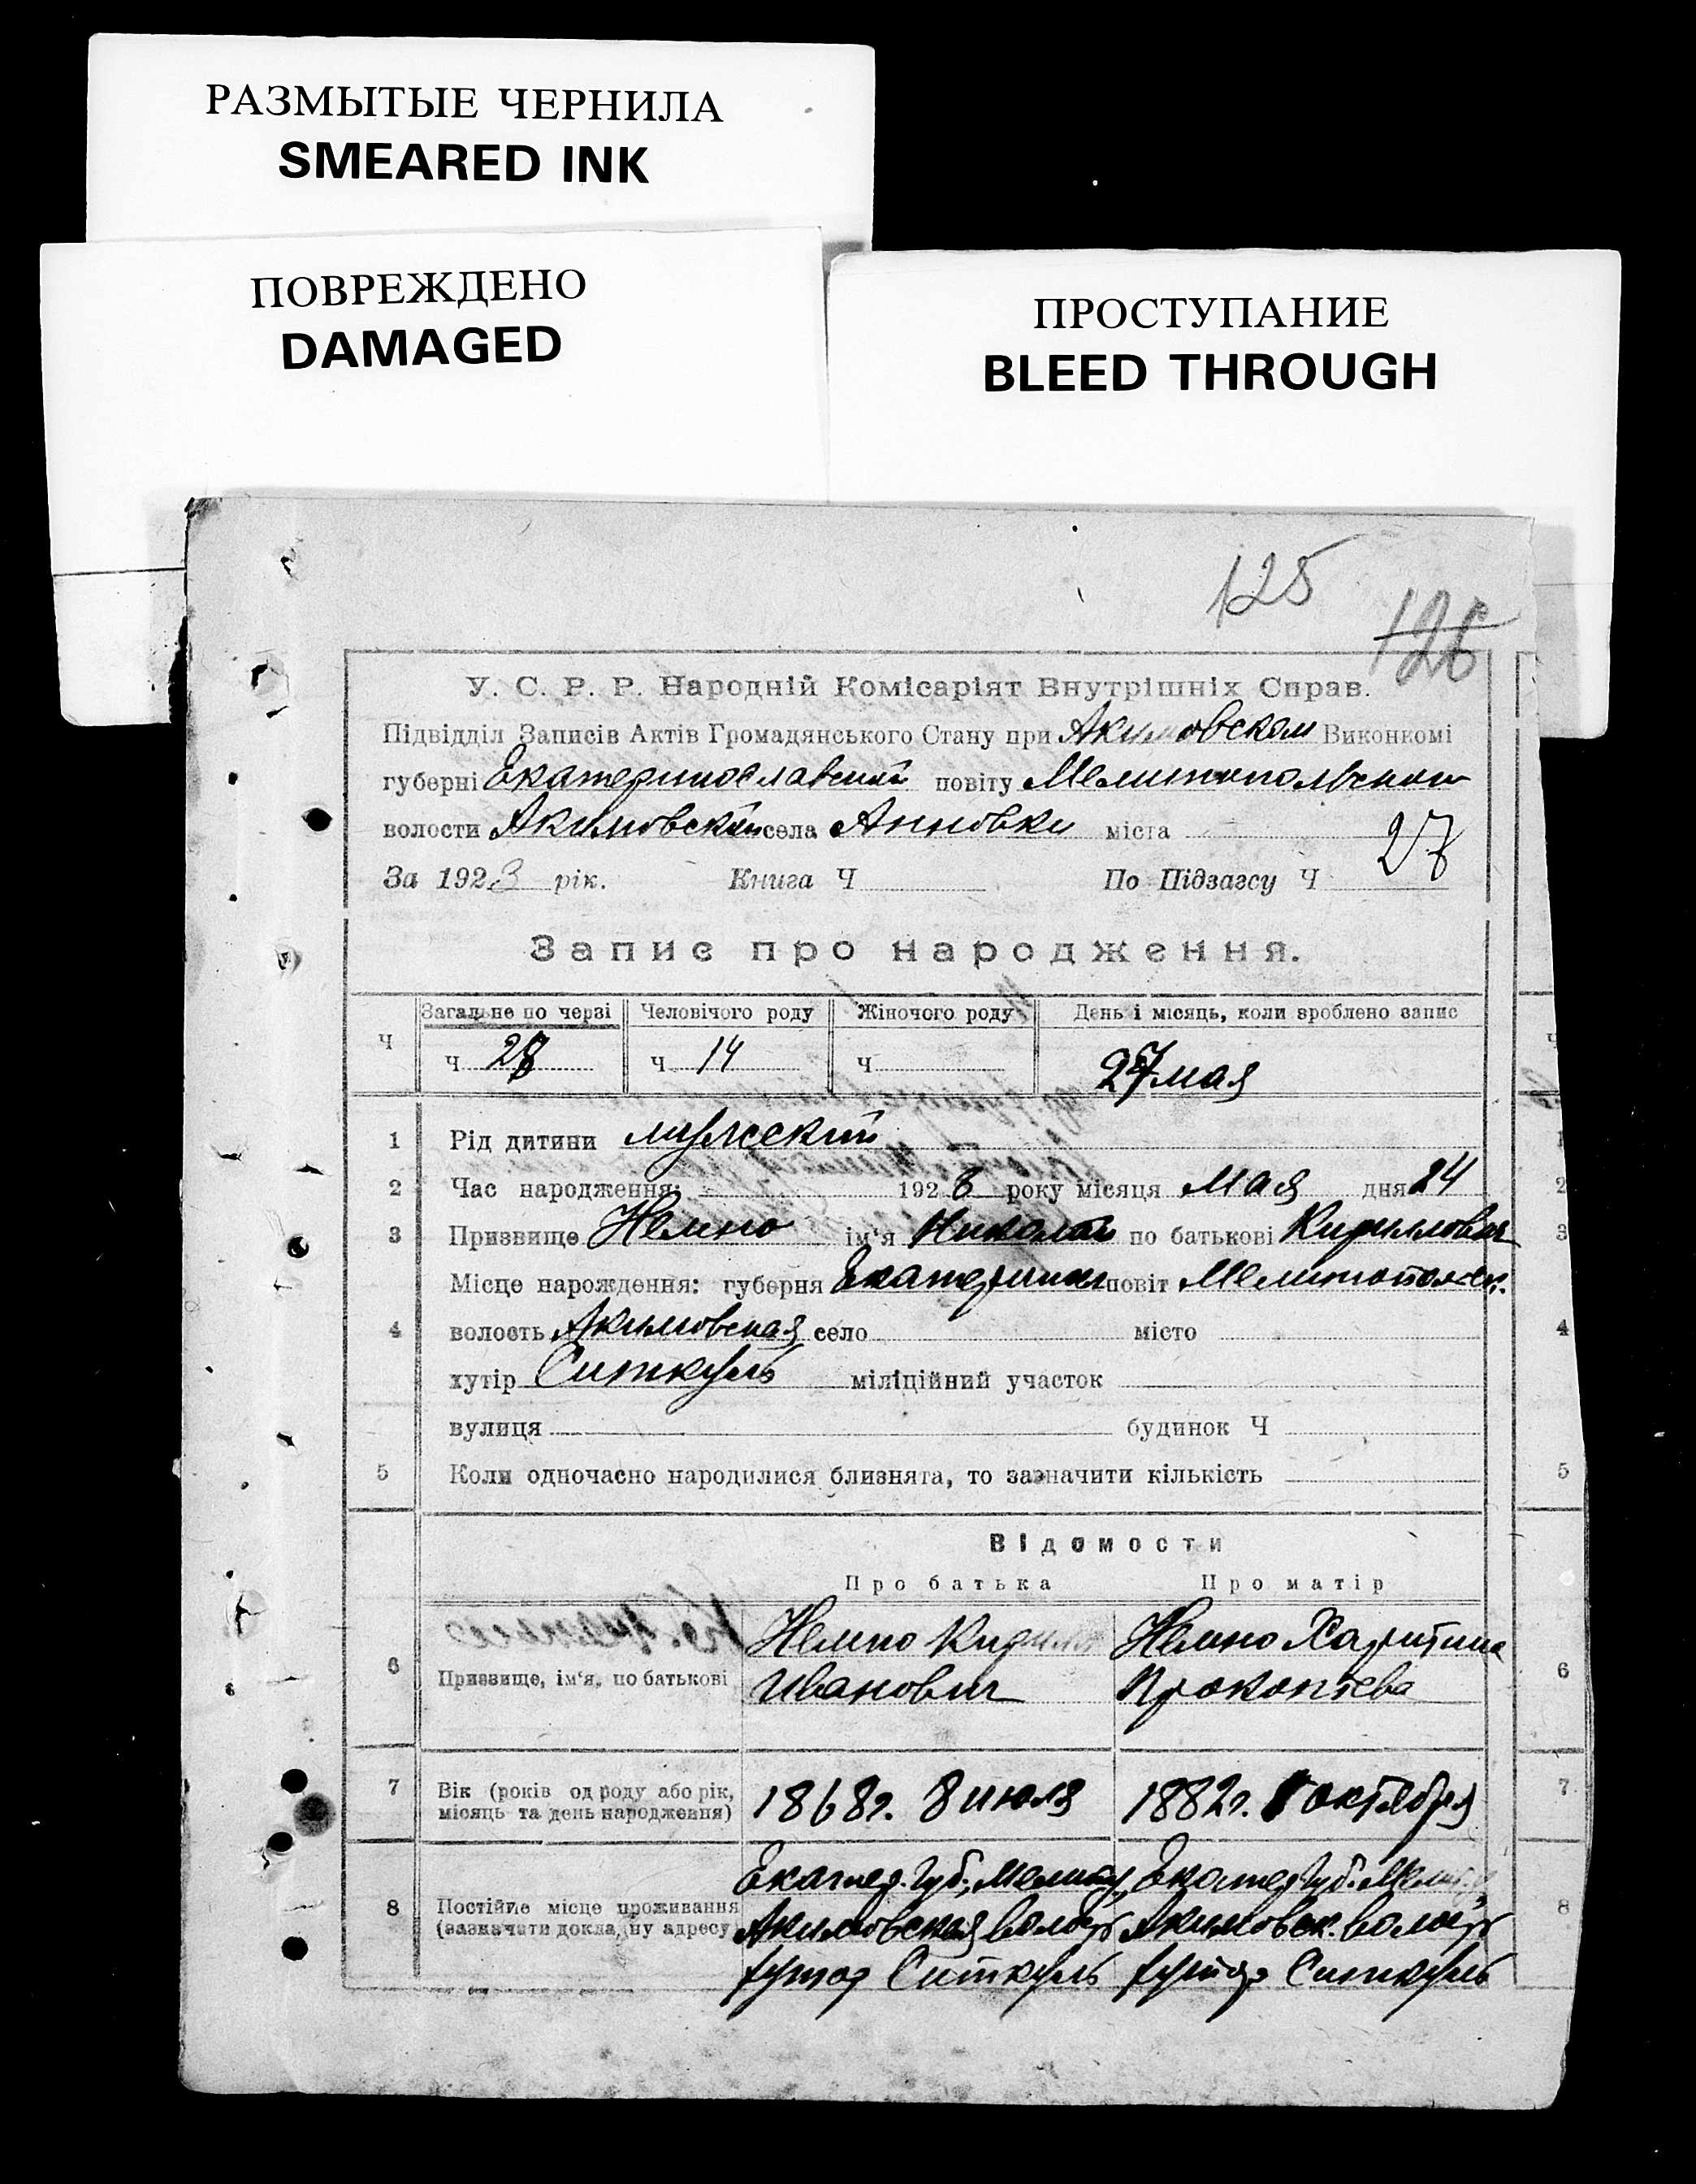 РАЗМЫТЫЕ ЧЕРНИЛА
SMEARED INK
ПОВРЕЖДЕНО
DAMAGED
ПРОСТУПАНИЕ
BLEED THROUGH
125
126
У. С. Р. Р. Народній Комісаріят Внутрішніх Справ.
Підвідділ Записів Актів Громадянського Стану при Акимовском Виконкомі
губерні Екатеринославской повіту Мелитопольского
волости Акимовской села Анновки міста
За 1923 рік. Книга Ч По Підзагсу Ч 27
Запис про народження.
Загальне по черзі Человічого роду Жіночого роду День і місяць, коли зроблено запис
Ч Ч 27 Ч 14 Ч 27 мая
1 Рід дитини мужской 1
2 Час народження: 1923 року місяця Мая дня 24 2
3 Призвище Немно ім'я Николай по батькові Кириллович 3
Місце нарождення: губерня Екатеринос повіт Мелитопольск.
4 волость Акимовская село місто 4
хутір Ситкуль міліційний участок
вулиця будинок Ч
5 Коли одночасно народилися близнята, то зазначити кількість 5
Відомости
Про батька Про матір
Немно Кирилл Немно Харитина
6 Призвище, ім'я, по батькові Иванович Прокопьева 6
7 Вік (років од роду або рік, 1868г. 8 июля 1882г. октября 7
місяць та день народження)
Екатер. Губ., Мелит. у, Екатер. Губ. Мелит. у,
8 Постійне місце проживання 8
(зазначити докладну адресу) Акимовская волость Акимовск. волость
хутор Ситкуль хутор Ситкуль